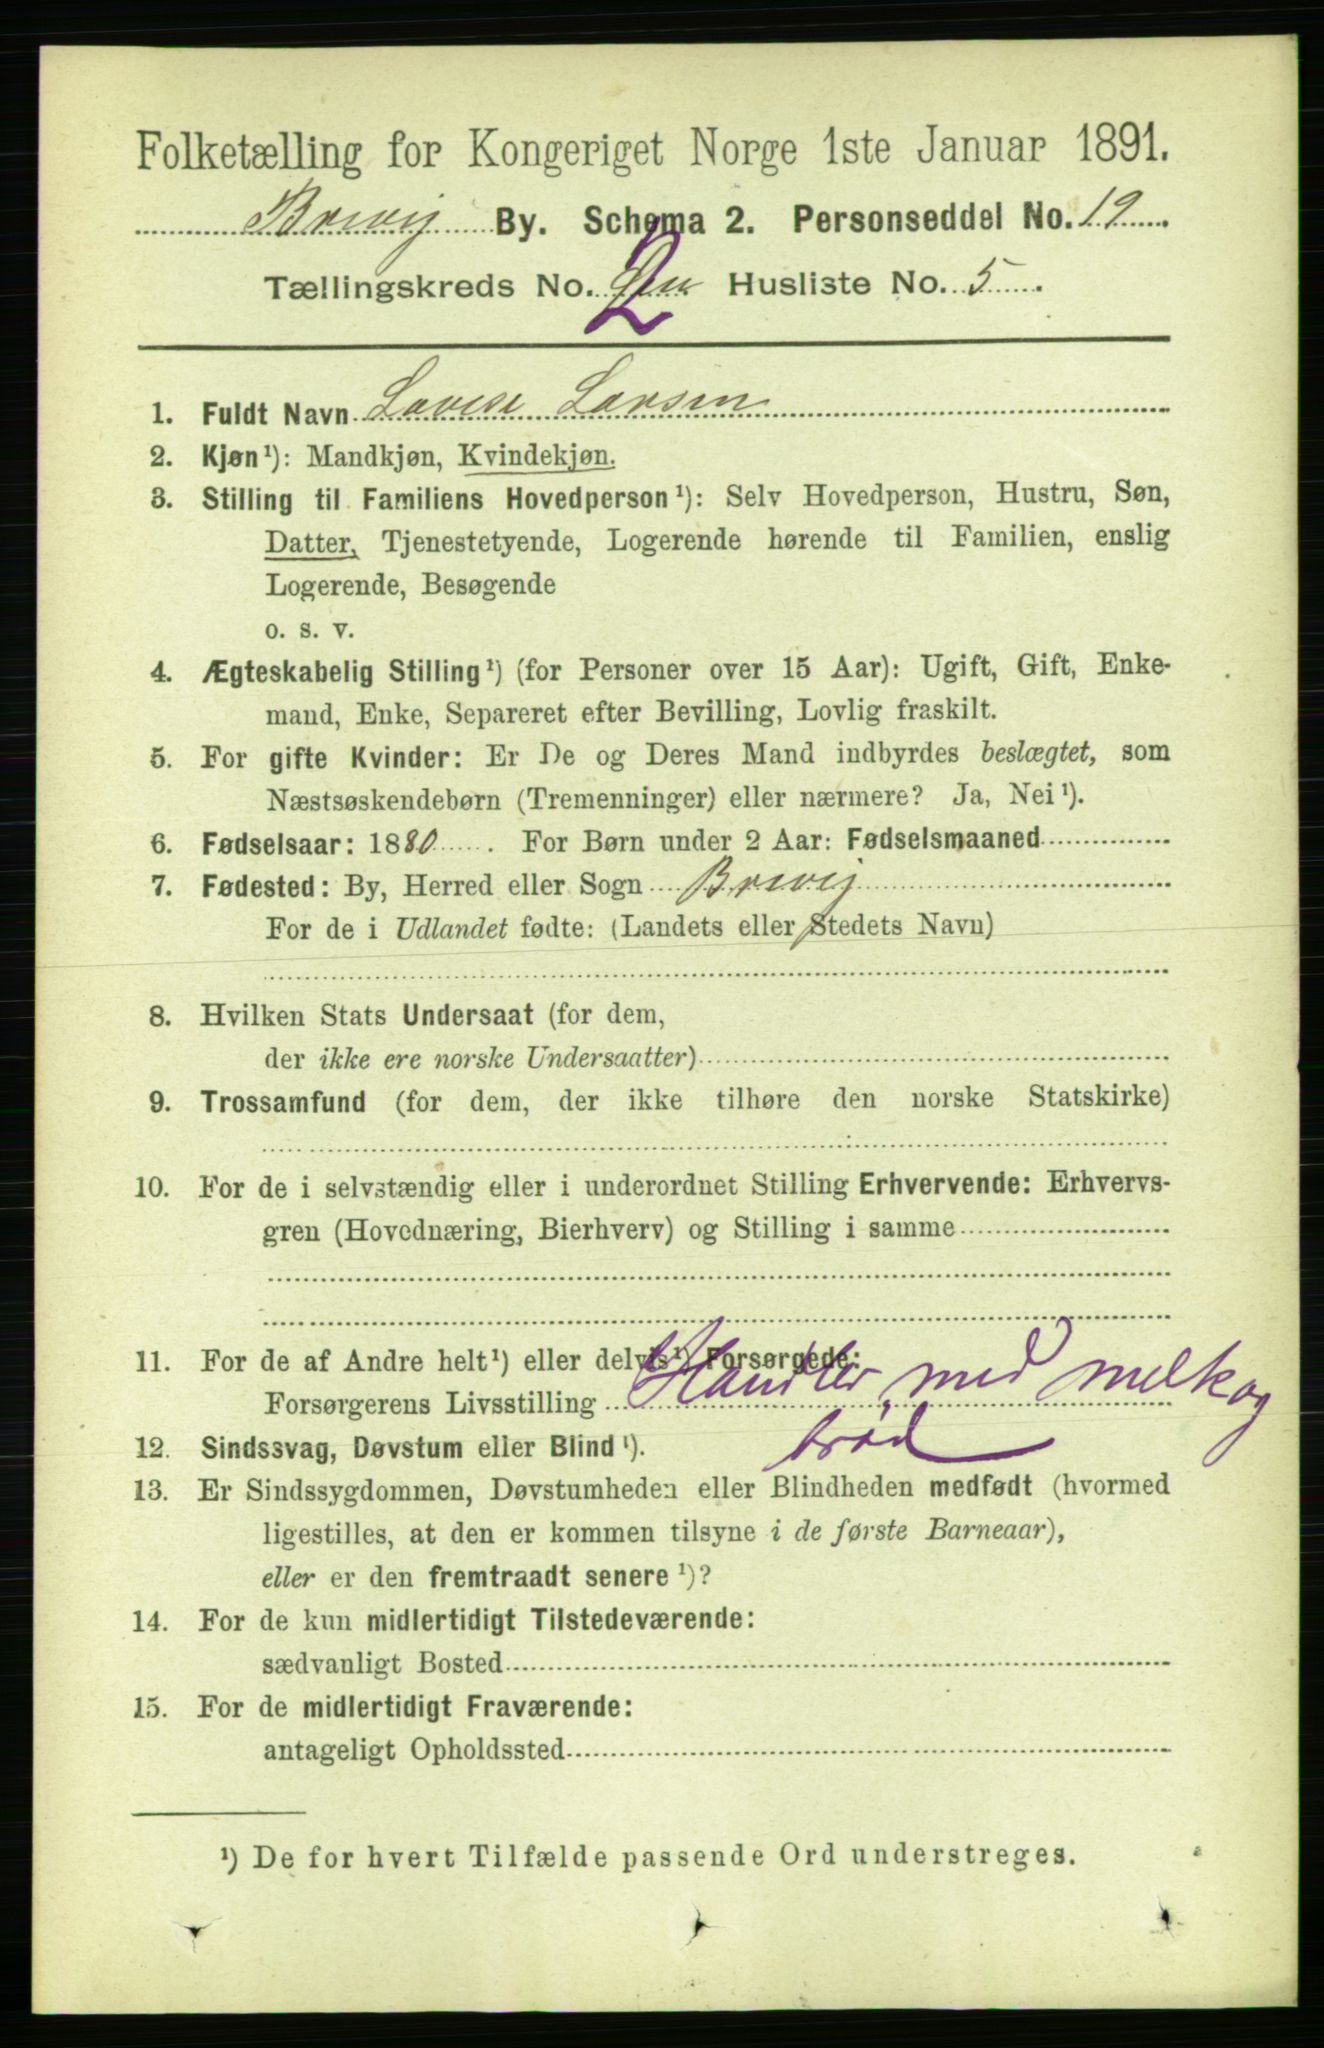 Folketælling for Kongeriget Norge 1ste Januar 1891.
Brevig By. Schema 2. Personseddel No. 19.
Tællingskreds No. 2 Husliste No. 5.
1. Fuldt Navn Lovise Larsen
2. Kjøn¹): Mandkjøn, Kvindekjøn.
3. Stilling til Familiens Hovedperson¹): Selv Hovedperson, Hustru, Søn,
Datter, Tjenestetyende, Logerende hørende til Familien, enslig
Logerende, Besøgende
o. s. v.
4. Ægteskabelig Stilling¹) (for Personer over 15 Aar): Ugift, Gift, Enke-
mand, Enke, Separeret efter Bevilling, Lovlig fraskilt.
5. For gifte Kvinder: Er De og Deres Mand indbyrdes beslægtet, som
Næstsøskendebørn (Tremenninger) eller nærmere? Ja, Nei¹).
6. Fødselsaar: 1880. For Børn under 2 Aar: Fødselsmaaned
7. Fødested: By, Herred eller Sogn Brevig
For de i Udlandet fødte: (Landets eller Stedets Navn)
8. Hvilken Stats Undersaat (for dem,
der ikke ere norske Undersaatter)
9. Trossamfund (for dem, der ikke tilhøre den norske Statskirke)
10. For de i selvstændig eller i underordnet Stilling Erhvervende: Erhvervs-
gren (Hovednæring, Bierhverv) og Stilling i samme
11. For de af Andre helt¹) eller delvis¹) Forsørgede:
Forsørgerens Livsstilling Handler med melk og
brød
12. Sindssvag, Døvstum eller Blind¹).
13. Er Sindssygdommen, Døvstumheden eller Blindheden medfødt (hvormed
ligestilles, at den er kommen tilsyne i de første Barneaar),
eller er den fremtraadt senere¹)?
14. For de kun midlertidigt Tilstedeværende:
sædvanligt Bosted
15. For de midlertidigt Fraværende:
antageligt Opholdssted
¹) De for hvert Tilfælde passende Ord understreges.